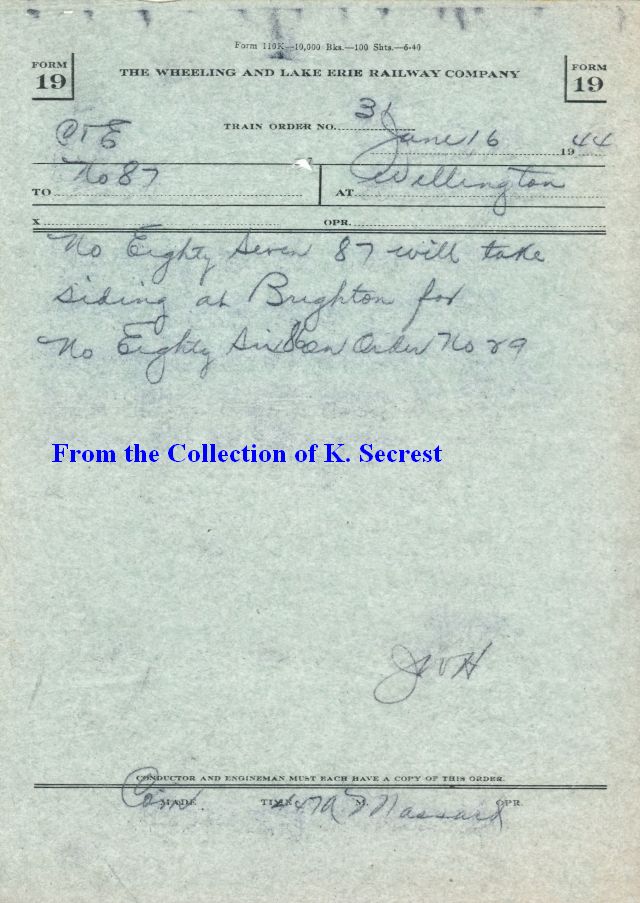 Form 110K—10,000 Bks.—100 Shts.—6-40
FORM 19
THE WHEELING AND LAKE ERIE RAILWAY COMPANY
FORM 19
TRAIN ORDER NO. 31
C&E June 16 1944
TO No 87 AT Wellington
X OPR.
No Eighty Seven 87 will take
siding at Brighton for
No Eighty Six 86 on Order No 29
From the Collection of K. Secrest
JVH
CONDUCTOR AND ENGINEMAN MUST EACH HAVE A COPY OF THIS ORDER.
Com MADE TIME M. Massard OPR.